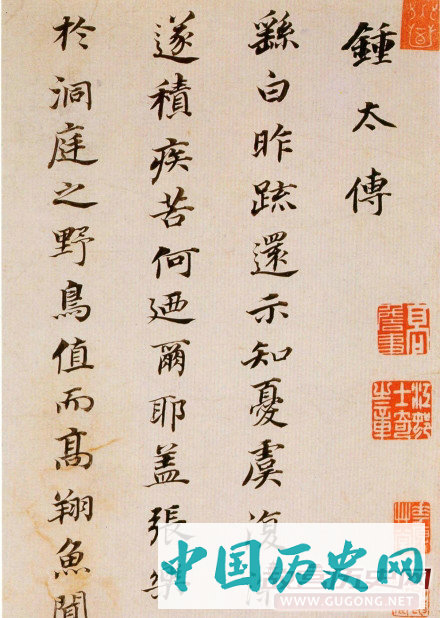 鍾太傅
繇白昨疏還示知憂虞復
遂積疾苦何迺爾耶盖張樂
於洞庭之野鳥值而高翔魚聞
中国历史网
WWW.GUGONG.NET